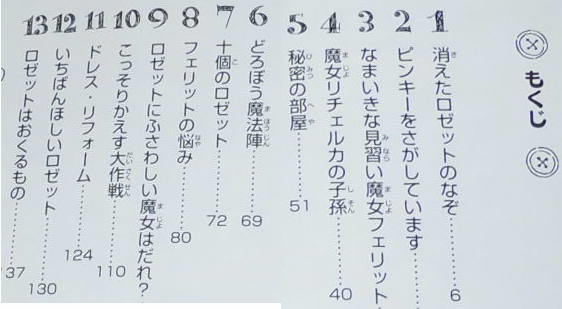 もくじ
1 消えたロゼットのなぞ………6
2 ピンキーをさがしています………
3 なまいきな見習い魔女フェリット…
4 魔女リチェルカの子孫………40
5 秘密の部屋………51
6 どろぼう魔法陣………69
7 十個のロゼット………72
8 フェリットの悩み………80
9 ロゼットにふさわしい魔女はだれ？
10 こっそりかえす大作戦………110
11 ドレス・リフォーム………124
12 いちばんほしいロゼット………130
13 ロゼットはおくるもの………137